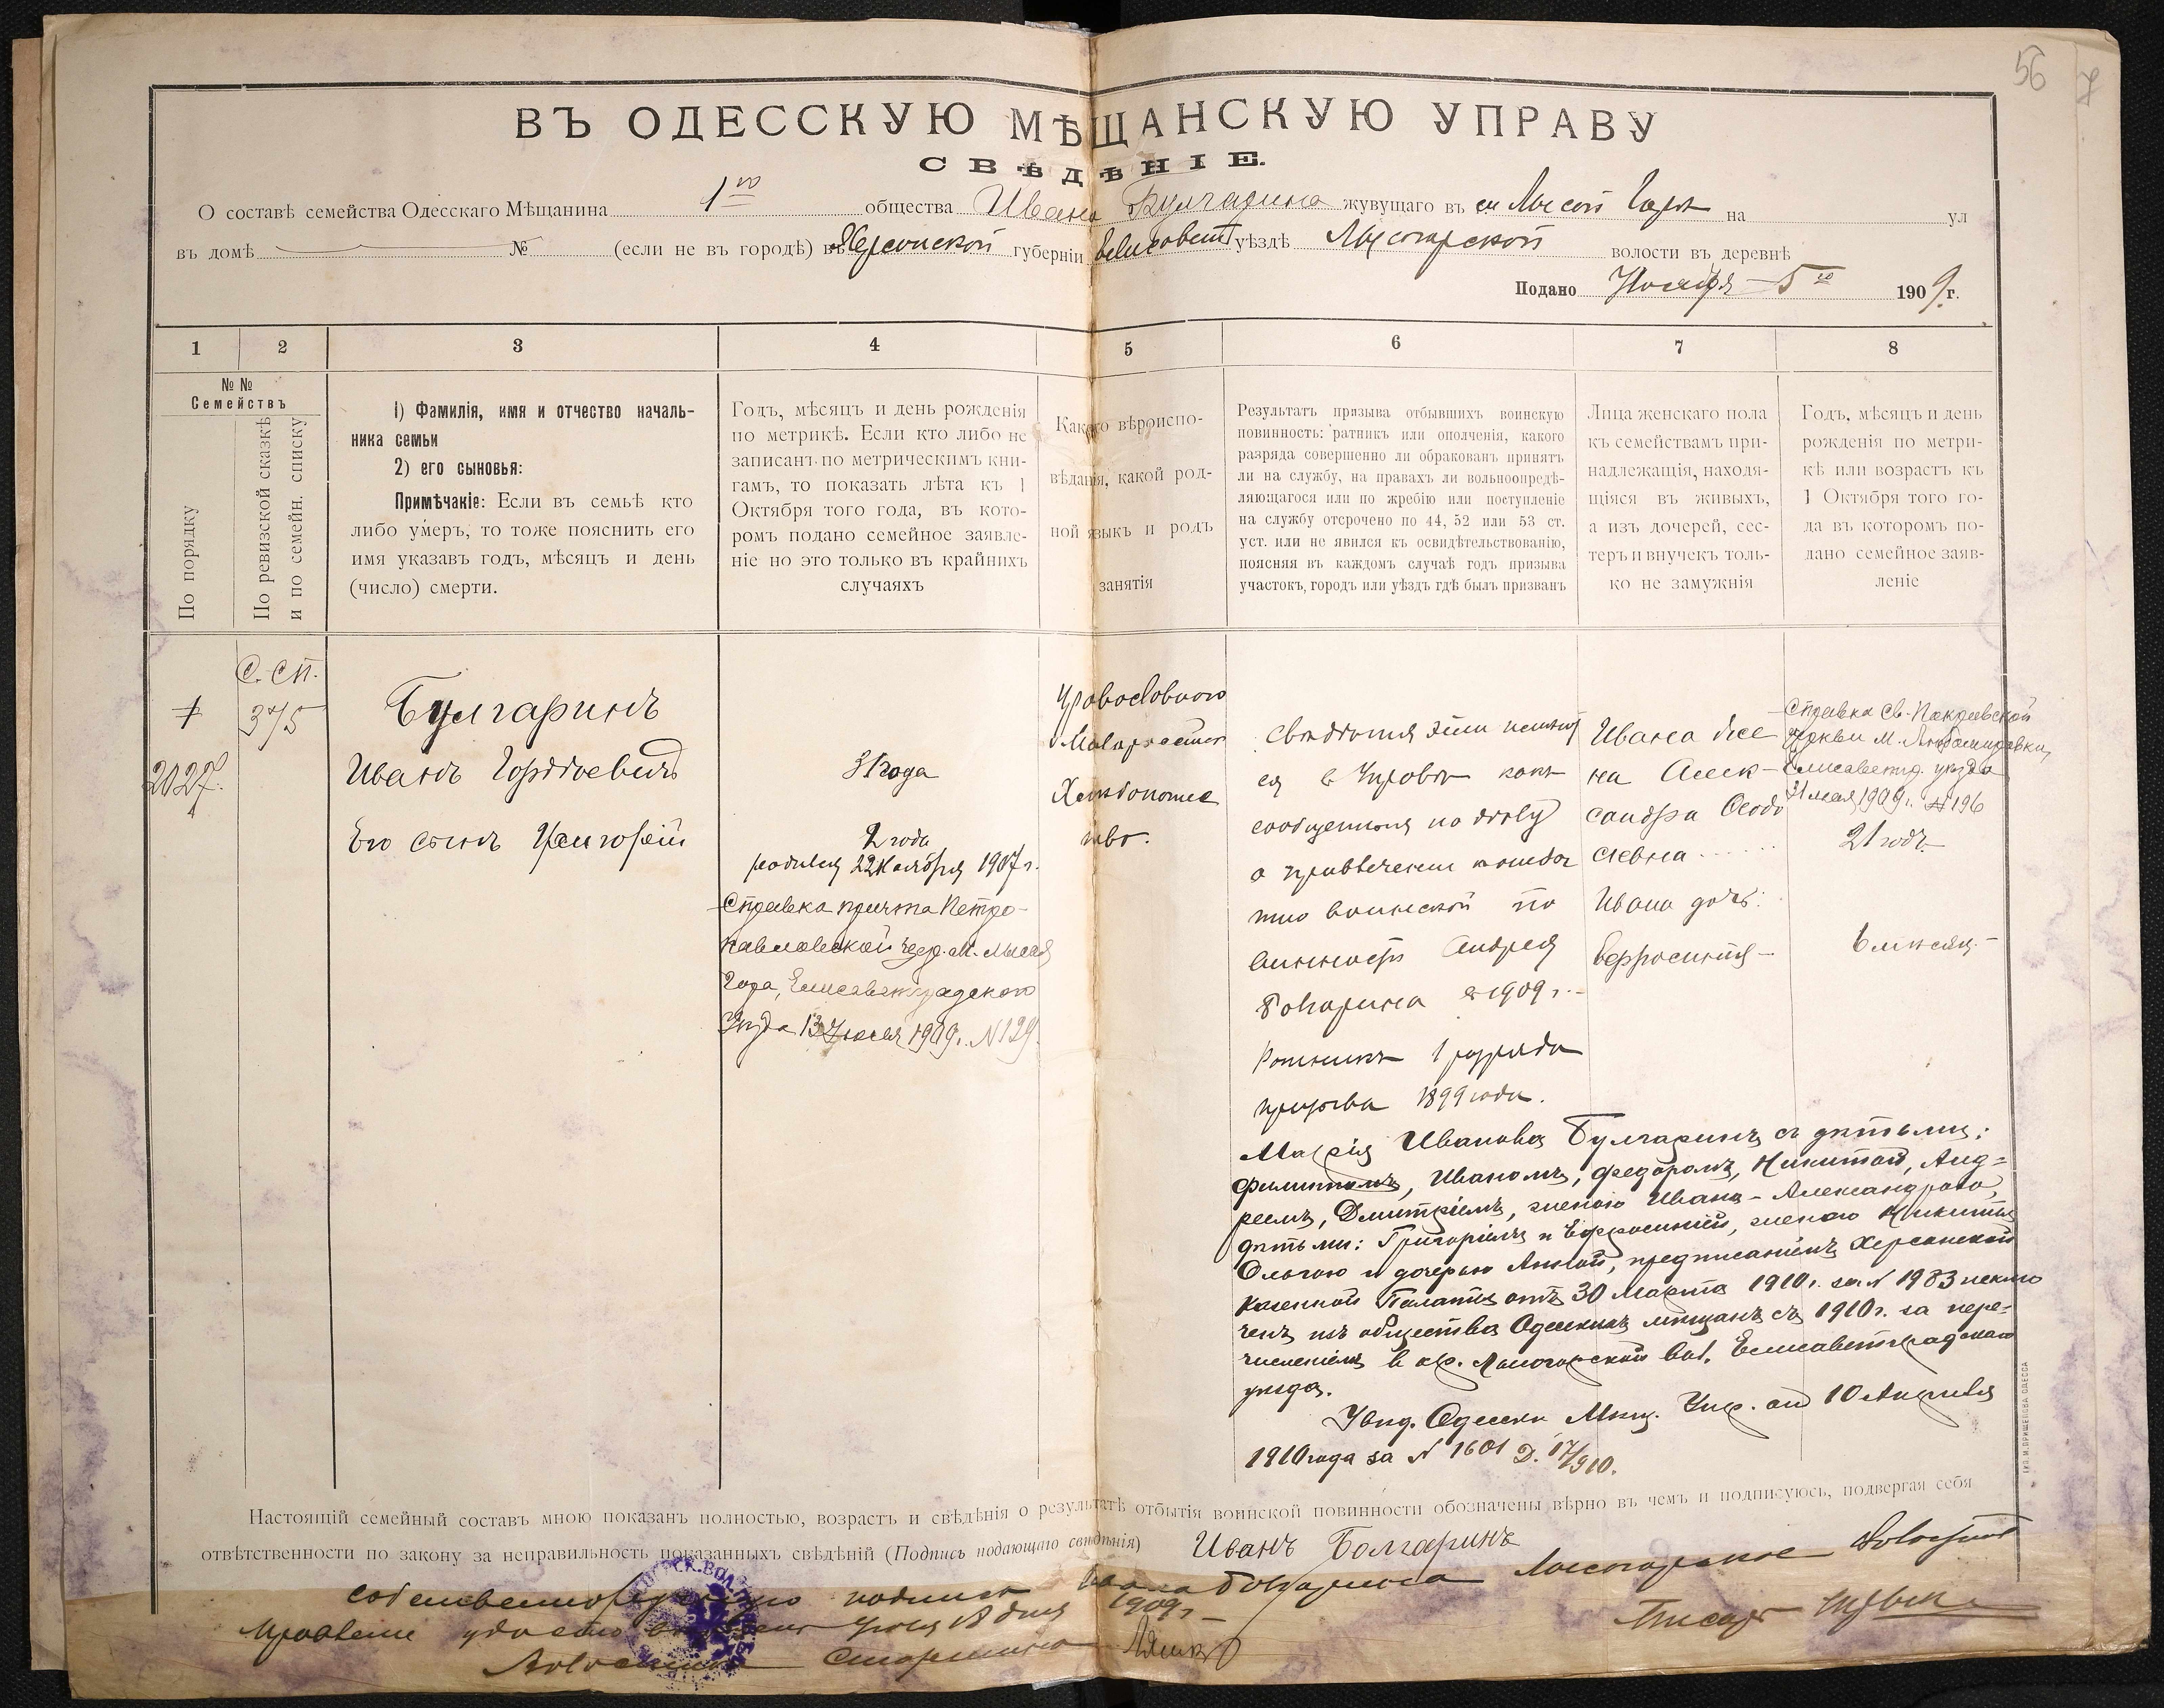 56
ВЪ ОДЕССКУЮ МѢЩАНСКУЮ УПРАВУ
СВѢДѢНІЕ.
О составѣ семейства Одесскаго Мѣщанина 1го общества Ивана Булгарина жувущаго въ на ул
въ домѣ № (если не въ городѣ) въ Херсонской губерніи Елисавет уѣздѣ Лысогорской волости въ деревнѣ
Подано 5го 1909 г.
1 2 3 4 5 6 7 8
№ №
Семействъ
По порядку
По ревизской сказкѣ
и по семейн. списку
1) Фамилія, имя и отчество началь-
ника семьи
2) его сыновья:
Примѣчакіе: Если въ семьѣ кто
либо умеръ, то тоже пояснить его
имя указавъ годъ, мѣсяцъ и день
(число) смерти.
Годъ, мѣсяцъ и день рожденія
по метрикѣ. Если кто либо не
записанъ по метрическимъ кни-
гамъ, то показать лѣта къ 1
Октября того года, въ кото-
ромъ подано семейное заявле-
ніе но это только въ крайнихъ
случаяхъ
Какого вѣроиспо-
вѣданія, какой род-
ной языкъ и родъ
занятія
Результатъ призыва отбывшихъ воинскую
повинность: ратникъ или ополченія, какого
разряда совершенно ли обракованъ принятъ
ли на службу, на правахъ ли вольноопредѣ-
ляющагося или по жребію или поступленіе
на службу отсрочено по 44, 52 или 53 ст.
уст. или не явился къ освидѣтельствованію,
поясняя въ каждомъ случаѣ годъ призыва
участокъ, городъ или уѣздъ гдѣ былъ призванъ
Лица женскаго пола
къ семействамъ при-
надлежащія, находя-
щіяся въ живыхъ,
а изъ дочерей, сес-
теръ и внучекъ толь-
ко не замужнія
Годъ, мѣсяцъ и день
рожденія по метри-
кѣ или возрастъ къ
1 Октября того го-
да въ которомъ по-
дано семейное заяв-
леніе
С. сп.
375
2027.
Булгаринъ
Иванъ Гордѣевичъ
Его сынъ Григорій
31 года
2 года
родился 22 Ноября 1907 г.
Справка причта Петро-
павловской цер. м. Лысая
Гора, Елисаветградского
уѣзда 13 Іюля 1909 г. N 129.
Православного
Малоросійск
Хлѣбопаше
ство.
Свѣдѣнія эти
ся в Управѣ какъ
сообщенныя по дѣлу
о привлеченіи къ отбы
тію воинской по
винности Андрея
Болгарина в 1909 г.
Ратникъ 1 разряда
призыва 1899 года.
Ивана жее
на Алек-
сандра Федо
сіевна
Ивана дочь:
Евфросинія
Справка Св. Покровской
церкви м. Любомировки,
Елисаветгр. уѣзда
31 мая 1909 г. № 196
21 годъ
6 мѣсяц.
Марія Иванова Булгаринъ съ дѣтьми:
Филиппомъ, Иваномъ, Федоромъ, Никитой, Анд-
реемъ, Дмитріемъ, женою Ивана - Александрою,
дѣтьми: Григоріемъ и Ефросиніей, женою Никиты
Ольгою и дочерью Анной, предписаніемъ Херсонской
Казенной Палаты отъ 30 Марта 1910 г. за N 1983 исклю
ченъ изъ общества Одесскихъ мѣщанъ съ 1910 г. за пере-
численіемъ в кр. Лысогорской вол. Елисаветградскаго
уѣзда.
Увѣд. Одесск. Мѣщ. Упр. от 10 Апрѣля
1910 года за N 1601 Д. 17/910.
Настоящій семейный составъ мною показанъ полностью, возрастъ и свѣдѣнія о результатѣ отбытія воинской повинности обозначены вѣрно въ чемъ и подписуюсь, подвергая себя
отвѣтственности по закону за неправильность показанныхъ свѣдѣній (Подпись подающаго свѣдѣнія) Иванъ Болгаринъ
собственноручную подпись Ивана Болгарина Лысогорское Волостное
Правленіе удостовѣряетъ Іюня 18 дня 1909 г.
Волостной Старшина Писарь